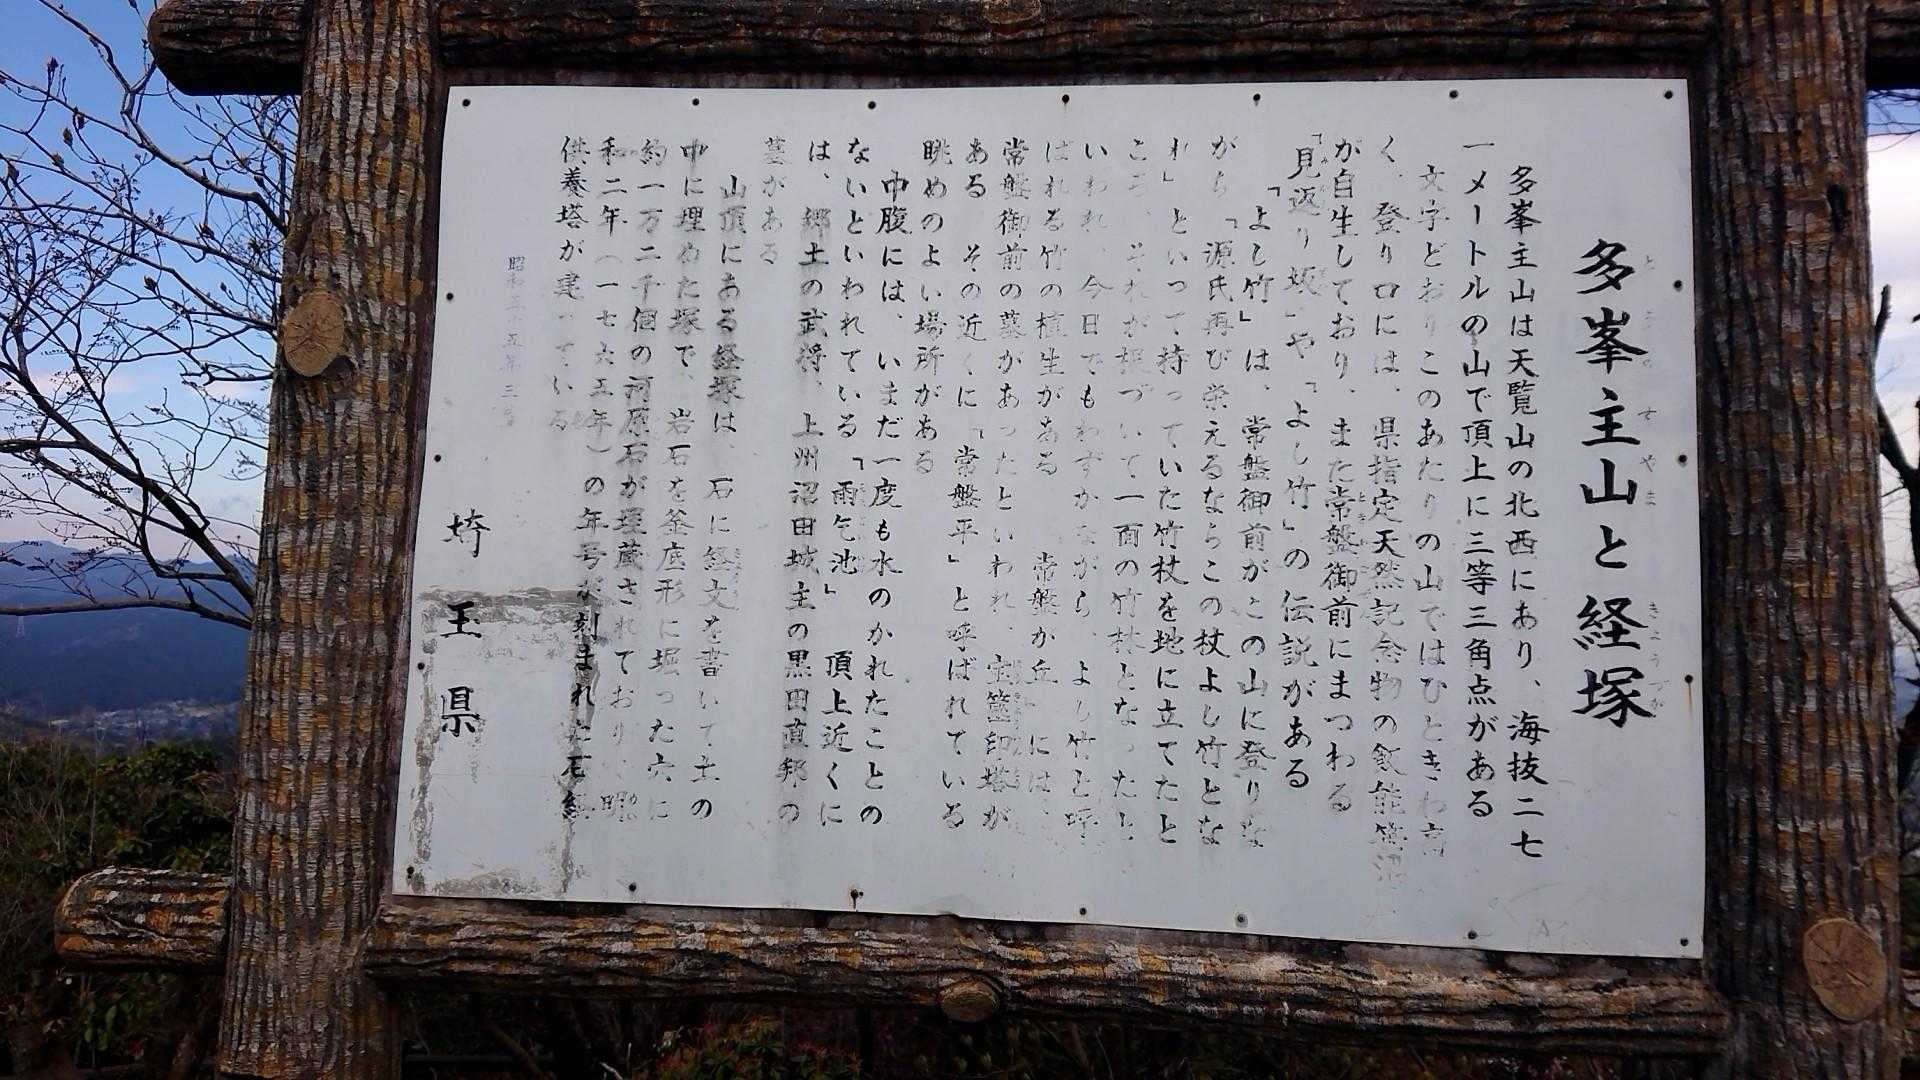 多峯主山と経塚
とうのすやま
きょうづか
多峯主山は天覧山の北西にあり、海抜二七
一メートルの山で頂上に三等三角点がある
文字どおりこのあたりの山ではひときわ高
く、登り口には、県指定天然記念物の飯能笹沼
が自生しており、また常盤御前にまつわる
「見返り坂」や「よし竹」の伝説がある
「よし竹」は、常盤御前がこの山に登りな
がら「源氏再び栄えるならこの杖よし竹とな
れ」といって持っていた竹杖を地に立てたと
ころ、それが根づいて一面の竹林となったと
いわれ、今日でもわずかながら、よし竹と呼
ばれる竹の植生がある 常盤が丘」には、
常盤御前の墓があったといわれ、宝篋印塔が
ある その近くに「常盤平」と呼ばれている
眺めのよい場所がある
中腹には、いまだ一度も水のかれたことの
ないといわれている「雨乞池」 頂上近くに
は、郷土の武将、上州沼田城主の黒田直邦の
墓がある
山頂にある経塚は 石に経文を書いて土の
中に埋めた塚で、岩石を釜底形に堀った穴に
約一万二千個の河原石が埋蔵されており、明
和二年（一七六五年）の年号が刻まれた石経
供養塔が建っている
昭和五十五年三月
埼玉県